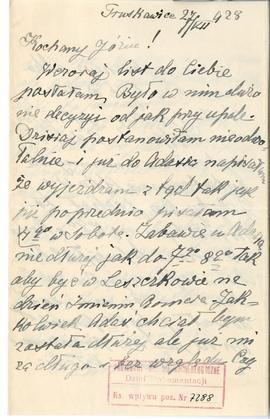 Truskawiec 27/VII 928
Kochany Józiu!
Wczoraj list do Ciebie
posłałam. Było w nim dużo
nie decyzji od jak przy upale.
Dzisiaj postanowiłam nieodwo
łalnie i już do Adasia napisałam
że wyjeżdżam z tąd tak jak
już poprzednio pisałam
w Sobotę. Zabawię u Adasia
nie dłużej jak do 7⁰⁰ 8⁰⁰ tak
aby być w Leszczkowie na
dzień Imienin Romcia. Jak-
kolwiek Adaś chciał bym
została dłużej, ale już mi
za długo i
Dział Dokumentacji
Ks. wpływu poz. Nr 7288